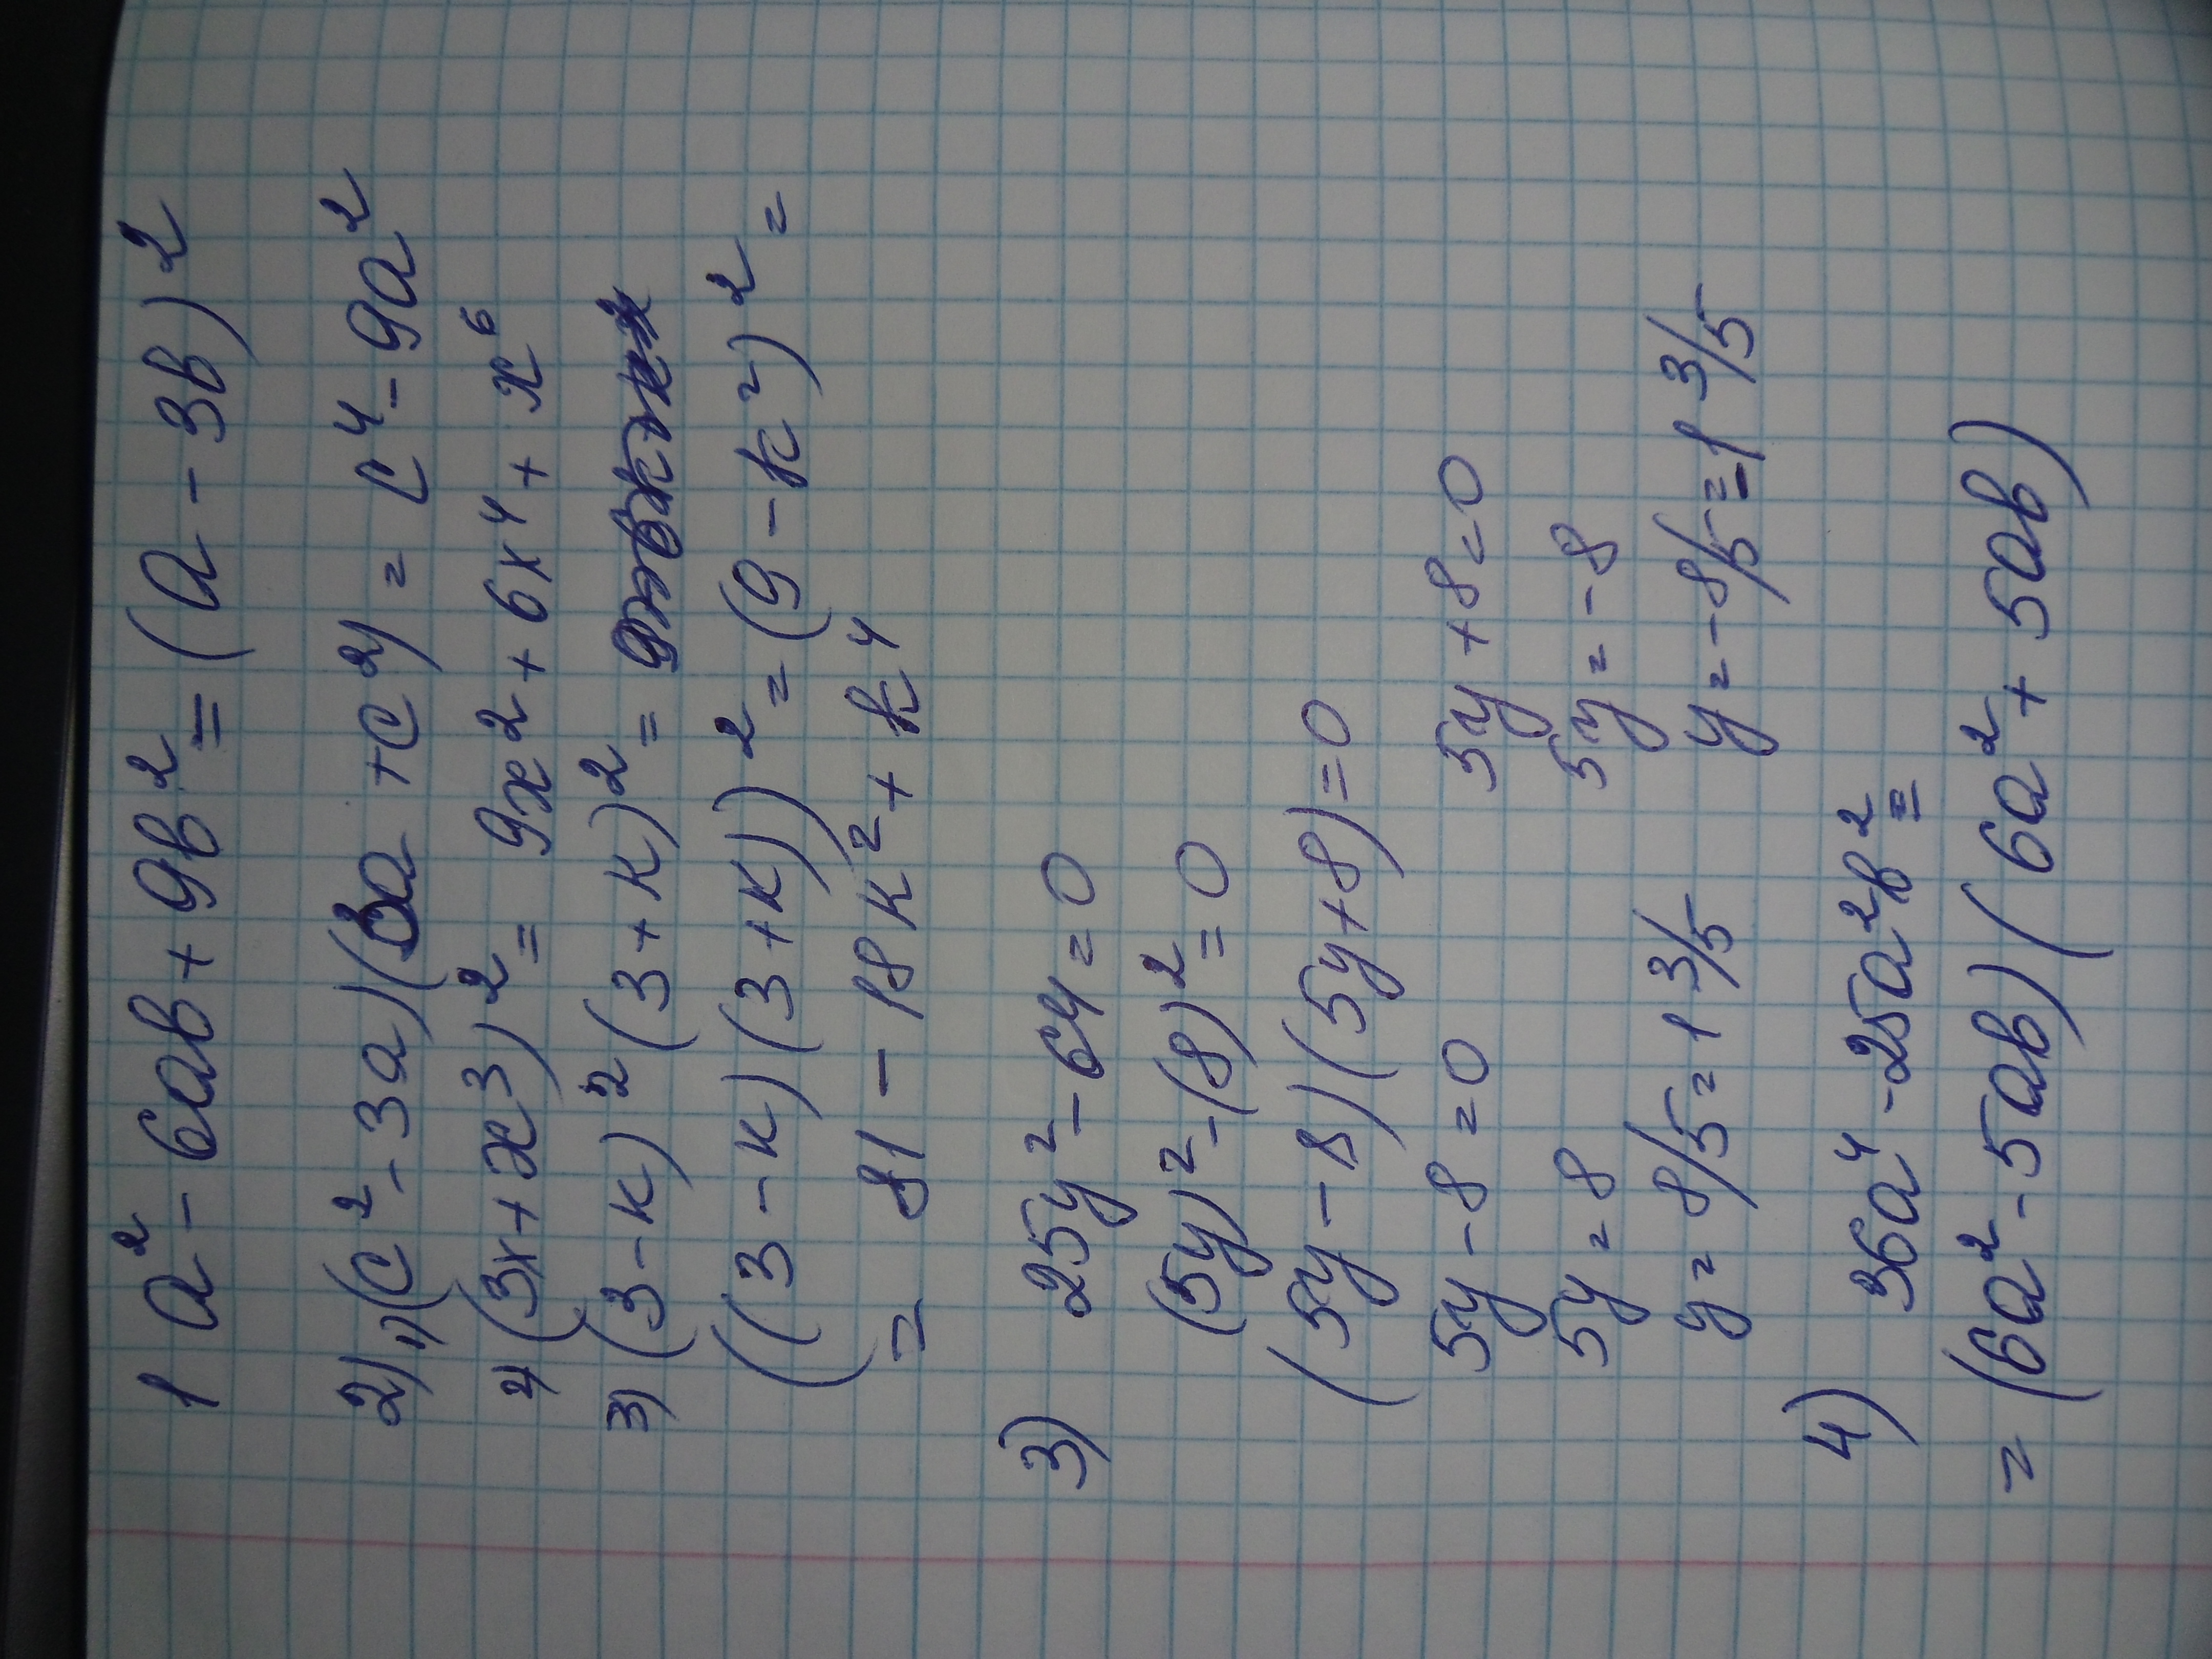 1 a² - 6ab + 9b² = (a - 3b)²
2) 1) (c² - 3a)(3a + c²) = c⁴ - 9a²
2) (3x + x³)² = 9x² + 6x⁴ + x⁶
3) (3 - k)² (3 + k)² =
((3 - k)(3 + k))² = (9 - k²)² =
= 81 - 18k² + k⁴
3) 25y² - 64 = 0
(5y)² - (8)² = 0
(5y - 8)(5y + 8) = 0
5y - 8 = 0 5y + 8 = 0
5y = 8 5y = -8
y = 8/5 = 1 3/5 y = -8/5 = -1 3/5
4) 36a⁴ - 25a²b² =
= (6a² - 5ab)(6a² + 5ab)